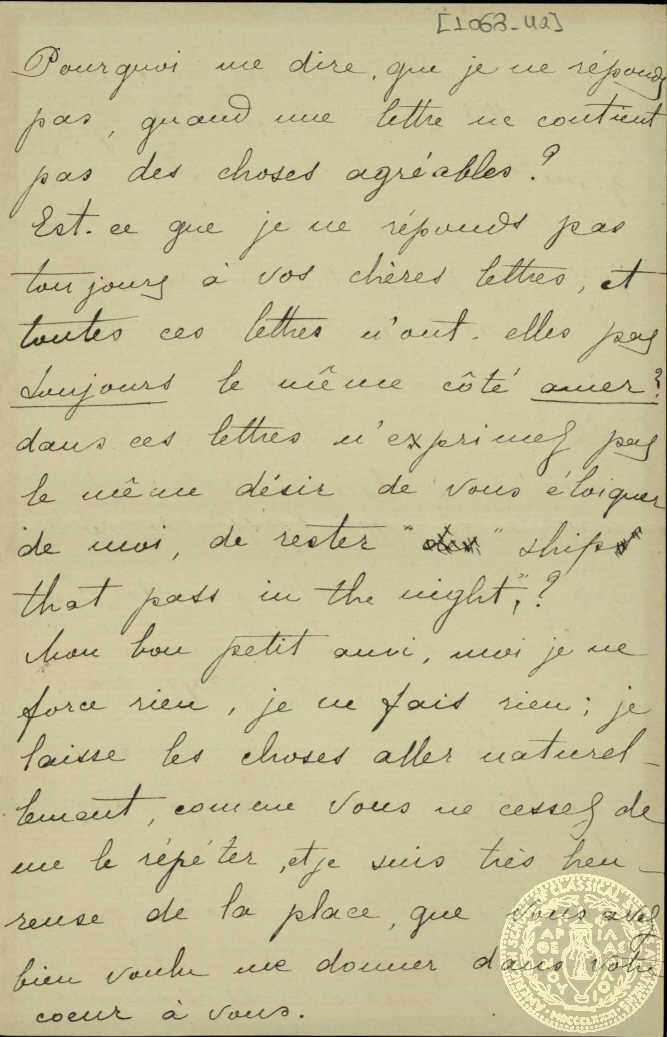 [1063-42]
Pourquoi me dire, que je ne réponds
pas, quand une lettre ne contient
pas des choses agréables?
Est-ce que je ne réponds pas
toujours à vos chères lettres, et
toutes ces lettres n'ont-elles pas
toujours le même côté amer?
dans ces lettres n'exprimez pas
le même désir de vous éloigner
de moi, de rester " " ships
that pass in the night",?
Mon bon petit ami, moi je ne
force rien, je ne fais rien; je
laisse les choses aller naturel-
lement, comme vous ne cessez de
me le répéter, et je suis très heu-
reuse de la place, que vous avez
bien voulu me donner dans votre
coeur à vous.